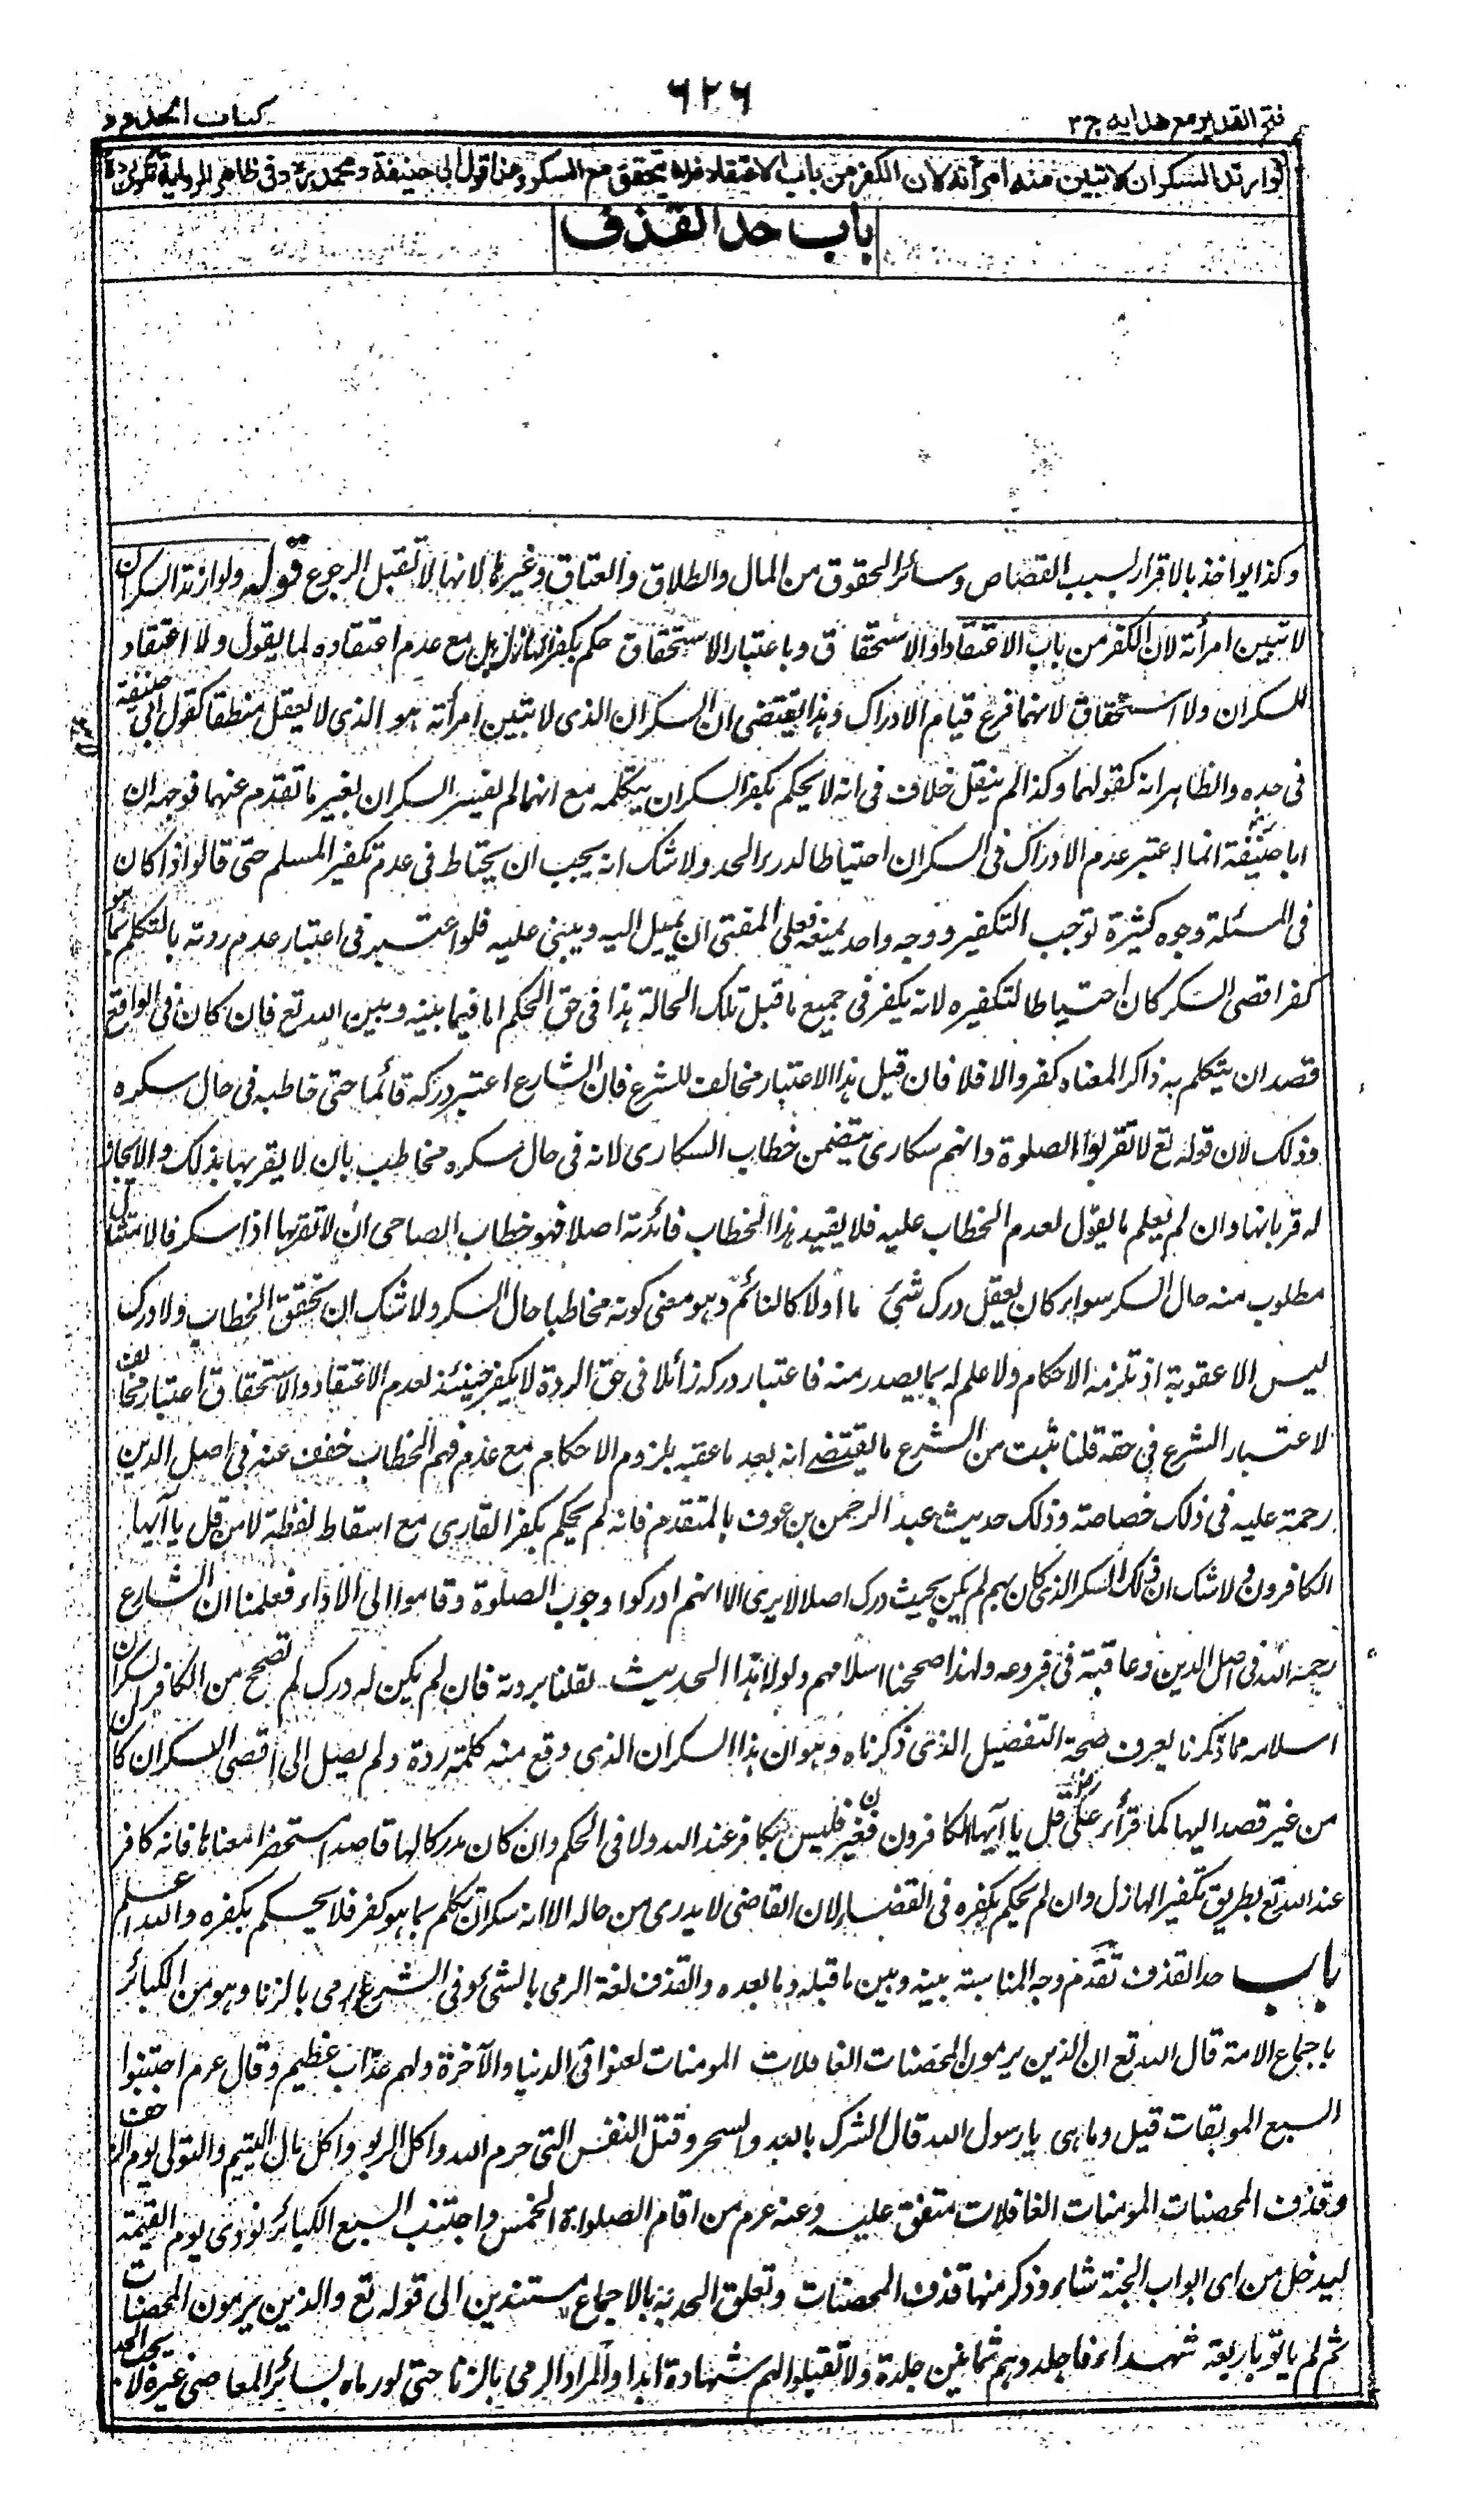 فتح القدير مع هدايه ج ٢
٦٢٦
كتاب الحدود
لوارتد السكران لا تبين منه امرأته لان الكفر من باب الاعتقاد فلا يتحقق مع السكر وهذا قول ابي حنيفة ومحمد رح وفى ظاهر الرواية تكون ردة
باب حد القذف
وكذا يواخذ بالاقرار لسبب القصاص وسائر الحقوق من المال والطلاق والعتاق وغيرها لانها لا تقبل الرجوع قوله ولو ارتد السكران
لا تبين امرأته لان الكفر من باب الاعتقاد او الاستحقاق وباعتبار الاستحقاق حكم بكفر الهازل مع عدم اعتقاده لما يقول ولا اعتقاد
للسكران ولا استحقاق لانهما فرع قيام الادراك وهذا يقتضى ان السكران الذى لا تبين امرأته هو الذى لا يعقل منطقا كقول ابى حنيفة رح
فى حده والظاهر انه كقولهما وكذا لم ينقل خلاف فى انه لا يحكم بكفر السكران بتكلمه مع انهما لم يفسر السكران بغير ما تقدم عنهما فوجهه ان
ابا حنيفة رح انما اعتبر عدم الادراك فى السكران احتياطا لدرء الحد ولا شك انه يجب ان يحتاط فى عدم تكفير المسلم حتى قالوا اذا كان
فى المسئلة وجوه كثيرة توجب التكفير ووجه واحد يمنعه فعلى المفتى ان يميل اليه ويبنى عليه فلو اعتبر فى اعتبار عدم ردته بالتكلم بما هو
كفر اقصى السكر كان احتياطا لتكفيره لانه يكفر فى جميع ما قبل تلك الحالة هذا فى حق الحكم اما فيما بينه وبين الله تع فان كان فى الواقع
قصد ان يتكلم به ذاكرا لمعناه كفر والا فلا فان قيل هذا الاعتبار مخالف للشرع فان الشارع اعتبر دركه قائما حتى خاطبه فى حال سكره
وذلك لان قوله تع لا تقربوا الصلوة وانتم سكارى يتضمن خطاب السكارى لانه فى حال سكره مخاطب بان لا يقربها بذلك والا لجاز
له قربانها وان لم يعلم ما يقول لعدم الخطاب عليه فلا يفيد هذا الخطاب فائدته اصلا فهو خطاب الصاحى ان لا تقربها اذا سكر فالامتثال
مطلوب منه حال السكر سواء كان يعقل درك شئ ما او لا كالنائم وهو معنى كونه مخاطبا حال السكر ولا شك ان تحقق الخطاب ولا درك
ليس الا عقوبة اذ تلزمه الاحكام ولا علم له بما يصدر منه فاعتبار دركه زائلا فى حق الردة لا يكفر حينئذ لعدم الاعتقاد والاستحقاق اعتبار مخالف
لاعتبار الشرع فى حقه قلنا ثبت من الشرع ما يقتضے انه بعد ما عقبه بلزوم الاحكام مع عدم فهم الخطاب خفف عنه فى اصل الدين
رحمة عليه فى ذلك خصاصة وذلك حديث عبد الرحمن بن عوف بالمتقدم فانه لم يحكم بكفر القارى مع اسقاط لفظة لا من قل يا ايها
الكافرون ولا شك ان ذلك السكر الذى كان بهم لم يكن بحيث درك اصلا الا يرى الا انهم ادركوا وجوب الصلوة وقاموا الى الاداء فعلمنا ان الشارع
رحمه الله فى اصل الدين وعاقبة فى فروعه ولهذا صححنا اسلامهم ولولا هذا الحديث لقلنا بردته فان لم يكن له درك لم تصح من الكافر السكران
اسلامه مما ذكرنا يعرف صحة التفصيل الذى ذكرناه وهو ان هذا السكران الذى وقع منه كلمة ردة ولم يصل الى اقصى السكر ان كان
من غير قصد اليها كما قرأ على رض قل يا ايها الكافرون فغير فليس بكافر عند الله ولا فى الحكم وان كان مدركا لها قاصدا مستحضرا لمعناها فانه كافر
عند الله تع بطريق تكفير الهازل وان لم يحكم بكفره فى القضاء لان القاضى لا يدرى من حاله الا انه سكران تكلم بما هو كفر فلا يحكم بكفره والله اعلم
باب حد القذف تقدم وجه المناسبة بينه وبين ما قبله وما بعده والقذف لغة الرمى بالشئ وفى الشرع رمى بالزنا وهو من الكبائر
باجماع الامة قال الله تع ان الذين يرمون المحصنات الغافلات المومنات لعنوا فى الدنيا والآخرة ولهم عذاب عظيم وقال عرم اجتنبوا
السبع الموبقات قيل وما هى يا رسول الله قال الشرك بالله والسحر وقتل النفس التى حرم الله واكل الربو واكل مال اليتيم والتولى يوم الزحف
وقذف المحصنات المومنات الغافلات متفق عليه وعنه عرم من اقام الصلوات الخمس واجتنب السبع الكبائر نودى يوم القيمة
ليدخل من اى ابواب الجنة شاء وذكر منها قذف المحصنات وتعلق الحد به بالاجماع مستندين الى قوله تع والذين يرمون المحصنات
ثم لم ياتوا باربعة شهداء فاجلدوهم ثمانين جلدة ولا تقبلوا لهم شهادة ابدا والمراد الرمى بالزنا حتى لو رماه بسائر المعاصى غيره لا يجب الحد